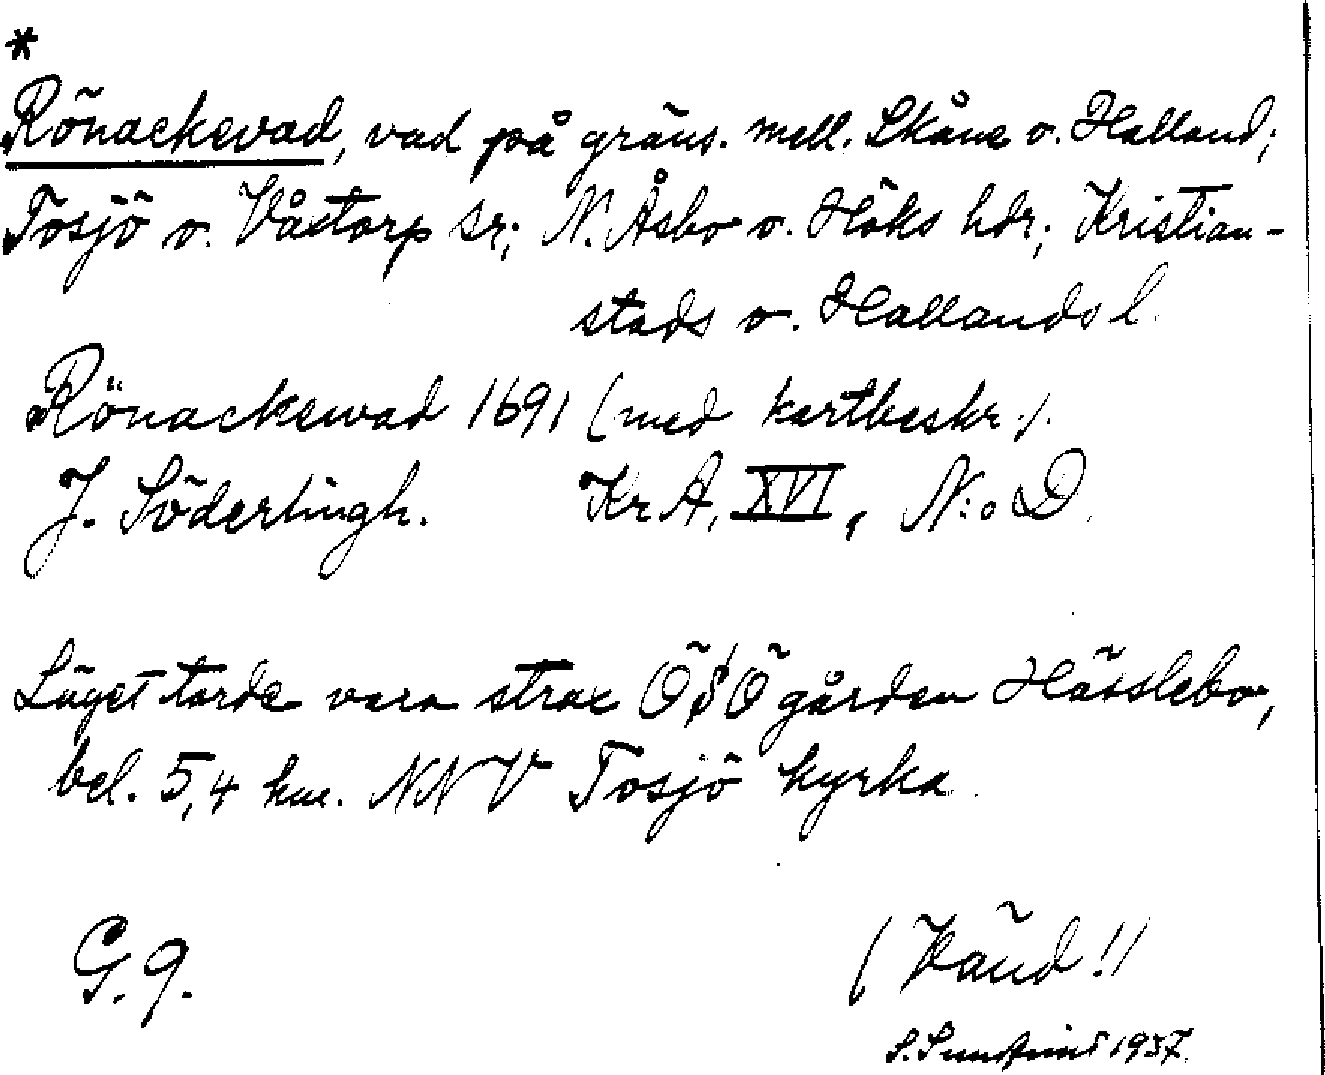 *
Rönackevad, vad på gräns. mell. Skåne o. Halland;
Tosjö o. Våxtorp sr; N. Åsbo o. Höks hdr; Kristian-
stads o. Hallands l.
Rönackewad 1691 (med kartbeskr.).
J. Söderlingh. Kr A, XVI, N:o D.
Läget torde vara strax ÖSÖ gården Hässlebo,
bel. 5,4 km. NNV Tosjö kyrka.
G. 9.
(Vänd!)
S. 1937.